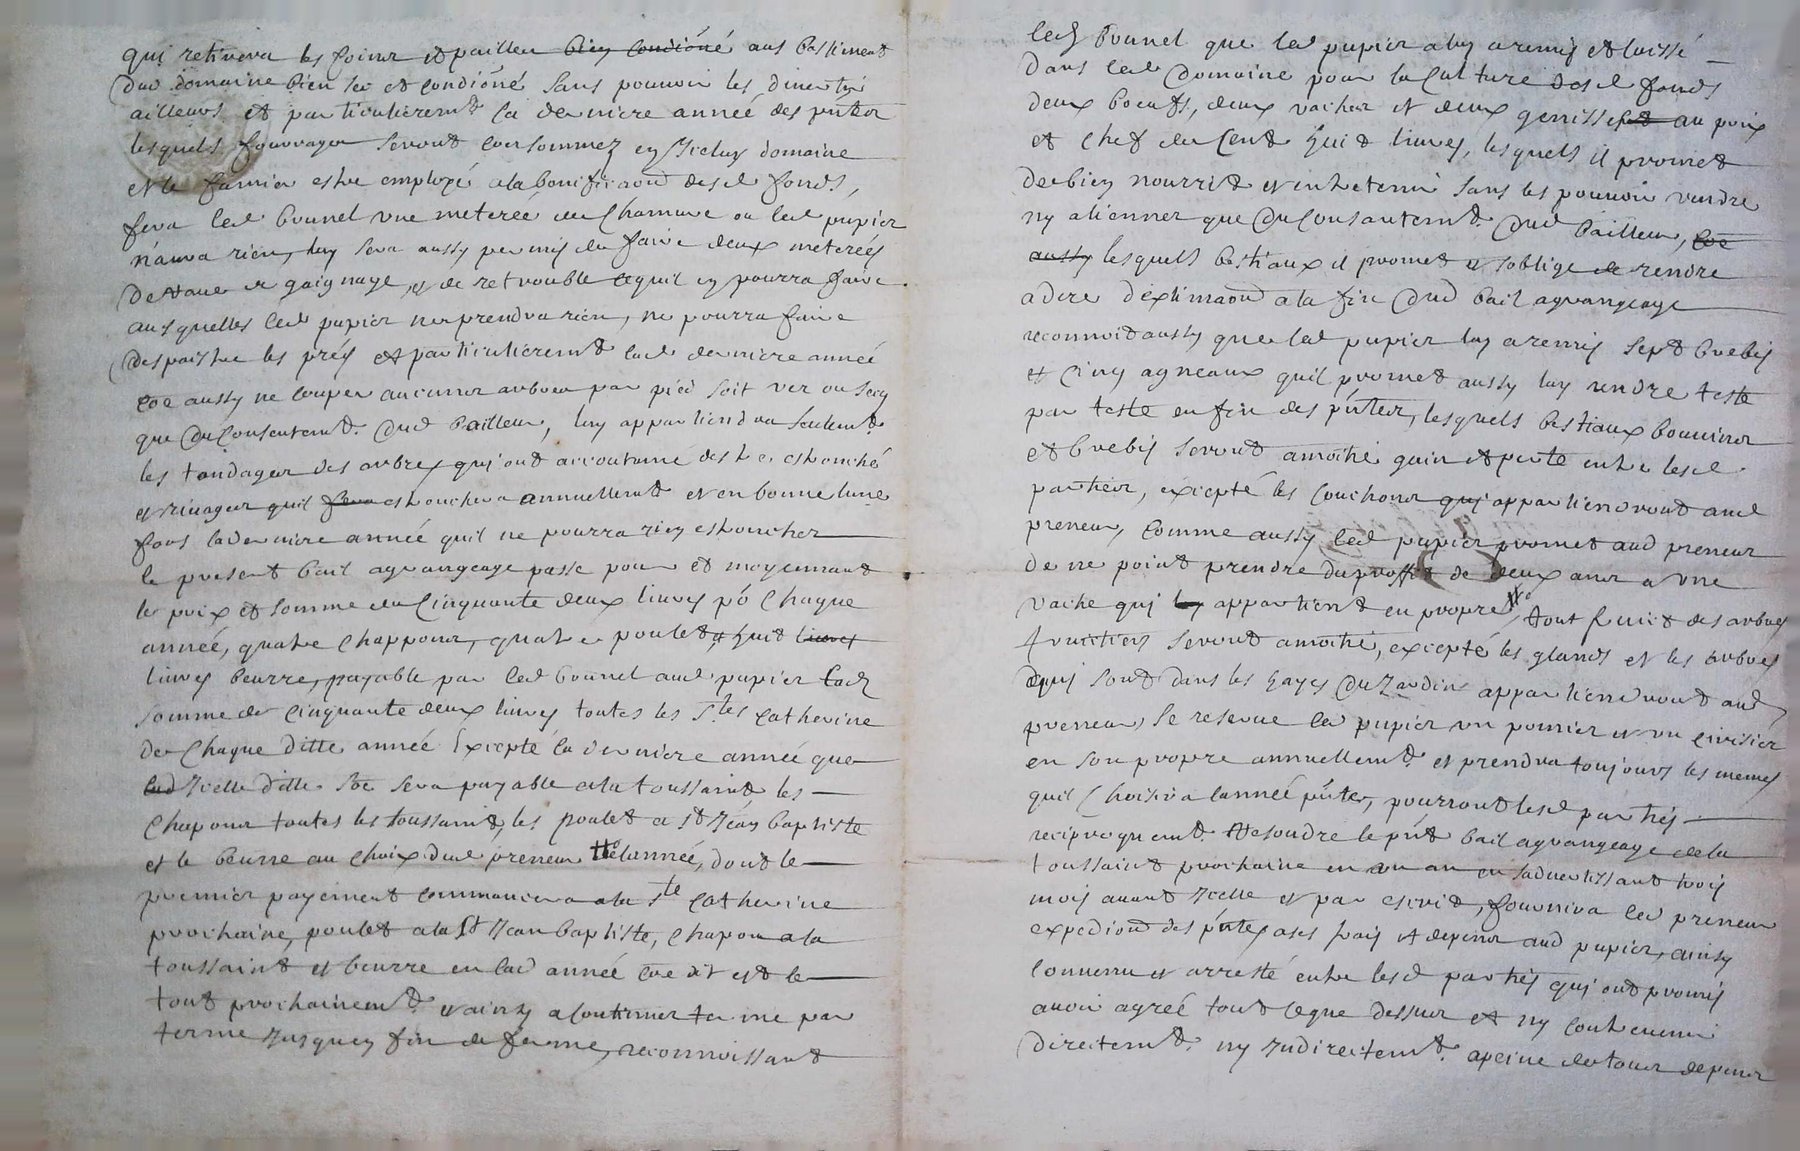 qui retirera les foins et pailles bien condiôné aus bastiments
dud domaine bien sec et condiôné sans pouvoir les divertir
ailleurs et particulieremt la derniere année des pntes
lesquels fourrages seront consommez en Iceluy domaine
et le fumier estre employé a la bonificaon desd fonds,
fera led brunel une meterée de Chanvre ou led papier
n'aura rien, luy sera aussy permis de faire deux meterées
de rave et gaignage, et de retrouble ce quil en pourra faire
ausquelles led pupier ne prendra rien, ne pourra faire
despaistre les prés et particulieremt lad derniere année
coe aussy ne couper aucuns arbres par pied soit ver ou secq
que du Consentemt dud bailleur, luy appartiendra seulemt
les tondages des arbres qui ont accoutumé destre esbranché
et rivages quil sera esbranchera annuellemt et en bonne lune
fors la derniere année quil ne pourra rien esbrancher
le present bail agrangeage passe pour et moyennant
le prix et somme de Cinquante deux livres po Chaque
année, quatre Chappons, quatre poulets, huit livres
livres beurre, payable par led brunel aud pupier lad
somme de Cinquante deux livres toutes les Stes Catherine
de Chaque ditte année Excepté la derniere année que
lad Icelle ditte soe sera payable a la toussaint les
Chapons toutes les toussaint, les poulets a St Jean baptiste
et le beurre au Choix dud preneur de lannée, dont le
premier payement commancera a la Ste Catherine
prochaine, poulets a la St Jean baptiste, Chapons a la
toussaint et beurre en lad année Coe dit est le
tout prochainemt et ainsy a Continuer terme par
terme Jusques fin de ferme, reconnoissant
led brunel que led pupier a luy a remis et laissé
dans led Domaine pour la Culture desd fonds
deux boeufs, deux vaches et deux genisses au prix
et Chef de Cent huit livres, lesquels il promet
de bien nourrir et entretenir sans les pouvoir vandre
ny alienner que du Consentemt dud bailleur, coe
aussy lesquels bestiaux il promet et soblige de rendre
a dire dextimaon a la fin dud bail agrangeage
reconnoit aussy que led pupier luy a remis sept brebis
et Cinq agneaux quil promet aussy luy rendre teste
par teste en fin des pntes, lesquels bestiaux bouvines
et brebis seront amoitié gain et perte entre lesd
parties, excepté les Couchons qui appartiendront aud
preneur, Comme aussy led pupier promet aud preneur
de ne point prendre du proffit de deux ans a une
vache qui luy appartient en propre, tout fruit des arbres
fruitiers seront amoitié, excepté les glands et les arbres
qui sont dans les hayes du Jardin appartiendront aud
preneur, Se reserve led pupier un pomier et un Cirisier
en son propre annuellemt et prendra toujours les memes
quil Choisira lannée pnte, pourront lesd parties
reciproquemt resoudre le pnt bail agrangeage de la
toussaint prochaine en un an en sadvertissant trois
mois avant Icelle et par escrit, fournira led preneur
expedion des pntes a ses frais et depens aud pupier, ainsy
Convenu et arresté entre lesd parties qui ont promis
avoir agreé tout ceque dessus et ny Contrevenir
directemt ny Indirectemt a peine de tous depens